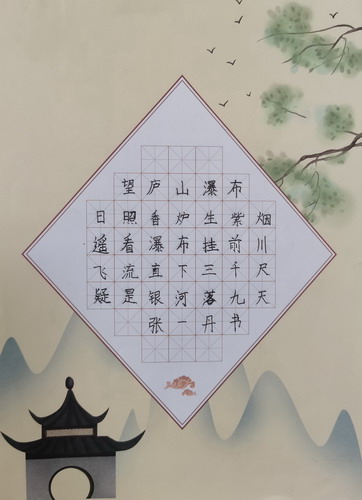 望庐山瀑布
日照香炉生紫烟
遥看瀑布挂前川
飞流直下三千尺
疑是银河落九天
张一丹书